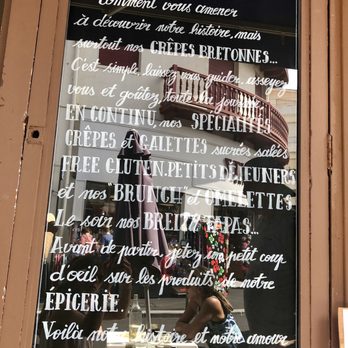 comment vous amener
à découvrir notre histoire, mais
surtout nos CRÊPES BRETONNES...
C'est simple, laissez vous guider, asseyez
vous et goûtez, toute la journée
EN CONTINU, nos SPÉCIALITÉS
CRÊPES et GALETTES sucrées salées
FREE GLUTEN, PETITS DÉJEUNERS
et nos BRUNCH et OMELETTES
Le soir nos BREIZH TAPAS...
Avant de partir, jetez un petit coup
d'oeil sur les produits de notre
ÉPICERIE.
Voilà notre histoire et notre amour